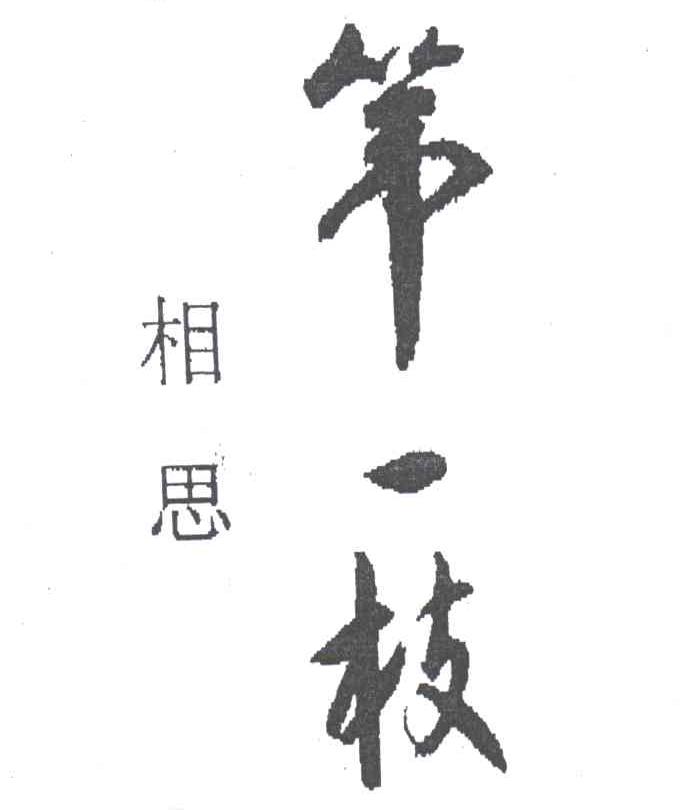 第一枝
相思